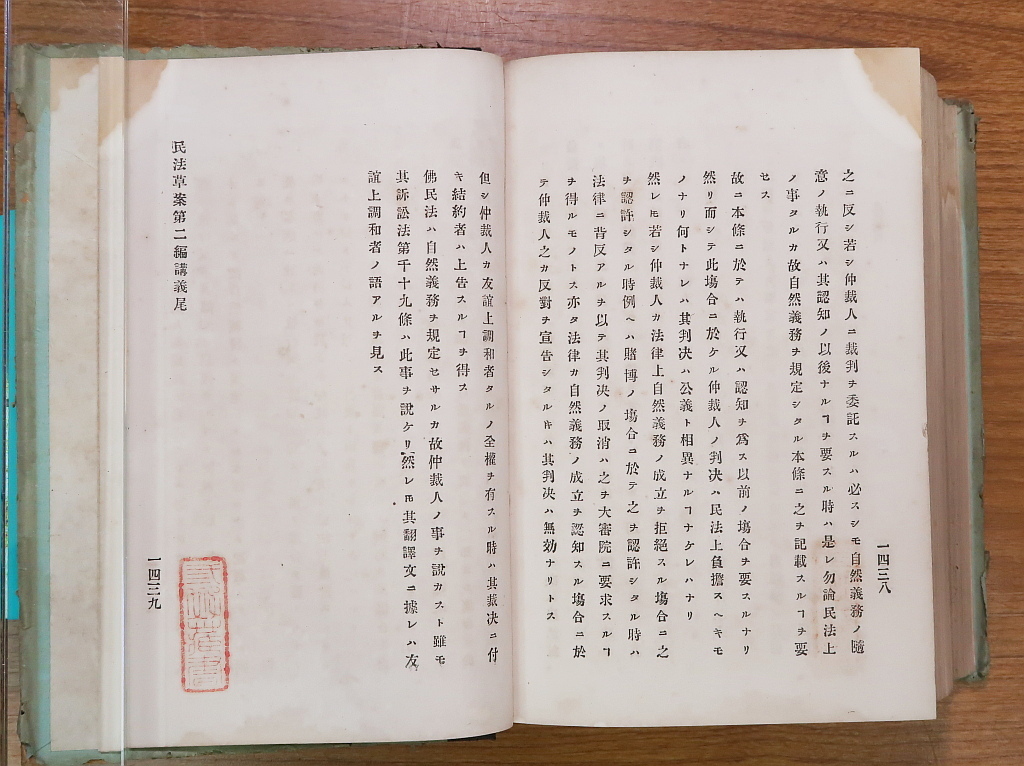 一四三八
之ニ反シ若シ仲裁人ニ裁判ヲ委託スルハ必スシモ自然義務ノ隨
意ノ執行又ハ其認知ノ以後ナルヿヲ要スル時ハ是レ勿論民法上
ノ事タルカ故自然義務ヲ規定シタル本條ニ之ヲ記載スルヿヲ要
セス
故ニ本條ニ於テハ執行又ハ認知ヲ爲ス以前ノ塲合ヲ要スルナリ
然リ而シテ此塲合ニ於ケル仲裁人ノ判决ハ民法上負擔スヘキモ
ノナリ何トナレハ其判决ハ公義ト相異ナルヿナケレハナリ
然レ𪜈若シ仲裁人カ法律上自然義務ノ成立ヲ拒絕スル塲合ニ之
ヲ認許シタル時例ヘハ賭博ノ塲合ニ於テ之ヲ認許シタル時ハ
法律ニ背反アルヲ以テ其判决ノ取消ハ之ヲ大審院ニ要求スルヿ
ヲ得ルモノトス亦タ法律カ自然義務ノ成立ヲ認知スル塲合ニ於
テ仲裁人之カ反對ヲ宣告シタルキハ其判决ハ無効ナリトス
但シ仲裁人カ友誼上調和者タルノ全權ヲ有スル時ハ其裁决ニ付
キ結約者ハ上告スルヿヲ得ス
佛民法ハ自然義務ヲ規定セサルカ故仲裁人ノ事ヲ說カスト雖モ
其訴訟法第千十九條ハ此事ヲ說ケリ然レ𪜈其翻譯文ニ據レハ友
誼上調和者ノ語アルヲ見ス
民法草案第二編講義尾
一四三九